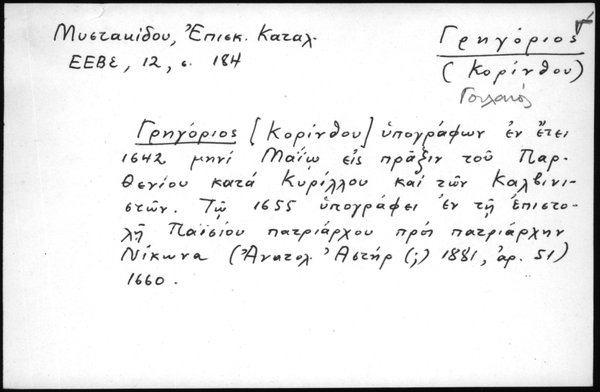 Μυστακίδου, Ἐπισκ. Καταλ.
ΕΕΒΣ, 12, σ. 184
Γρηγόριος
(Κορίνθου)
Γρηγόριος [Κορίνθου] ὑπογράφων ἐν ἔτει
1642 μηνί Μαΐῳ εἰς πρᾶξιν τοῦ Παρ-
θενίου κατά Κυρίλλου καί τῶν Καλβινι-
στῶν. Τῷ 1655 ὑπογράφει ἐν τῇ ἐπιστο-
λῇ Παϊσίου πατριάρχου πρός πατριάρχην
Νίκωνα (Ἀνατολ. Ἀστήρ (;) 1881, ἀρ. 51)
1660.